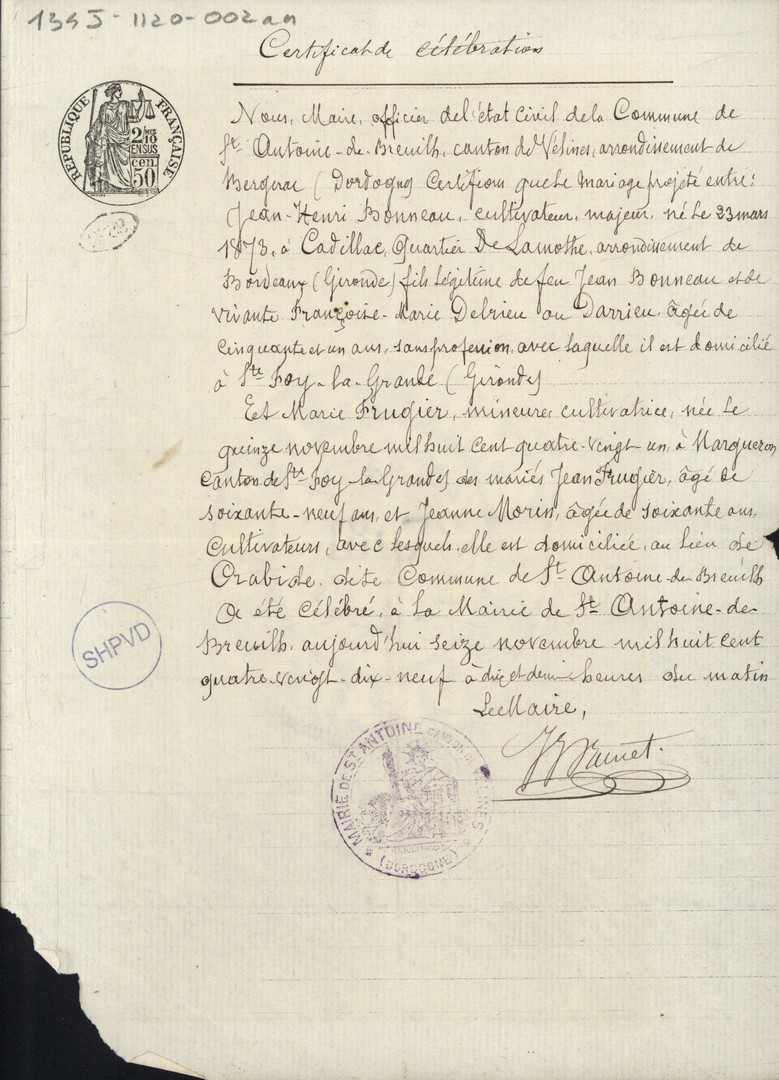 1395-1120-002an
Certificat de célébration
RÉPUBLIQUE FRANÇAISE
2/10 MES
EN SUS
50 cen.
Nous, Maire, officier de l'état civil de la Commune de
St. Antoine-de-Breuilh, canton de Vélines, arrondissement de
Bergerac (Dordogne) Certifions que le mariage projeté entre:
Jean-Henri Bonneau, cultivateur, majeur, né le 23 mars
1873, à Cadillac, Quartier De Lamothe, arrondissement de
Bordeaux (Gironde) fils légitime de feu Jean Bonneau et de
vivante Françoise-Marie Delrieu ou Darrieu, âgée de
cinquante et un ans, sans profession, avec laquelle il est domicilié
à Ste Foy-la-Grande (Gironde)
Et Marie Frugier, mineure, cultivatrice, née le
quinze novembre mil huit cent quatre-vingt un, à Margueron
Canton de Ste Foy-la-Grande, des mariés Jean Frugier, âgé de
soixante-neuf ans, et Jeanne Morin, âgée de soixante ans,
Cultivateurs, avec lesquels elle est domiciliée, au lieu de
dite Commune de St. Antoine-de-Breuilh
a été célébré, à la Mairie de St. Antoine-de-
Breuilh, aujourd'hui seize novembre mil huit cent
quatre-vingt-dix-neuf à dix et demie heures du matin
Le Maire,
SHPVD
MAIRIE DE ST ANTOINE CANTON DE VÉLINES
(DORDOGNE)